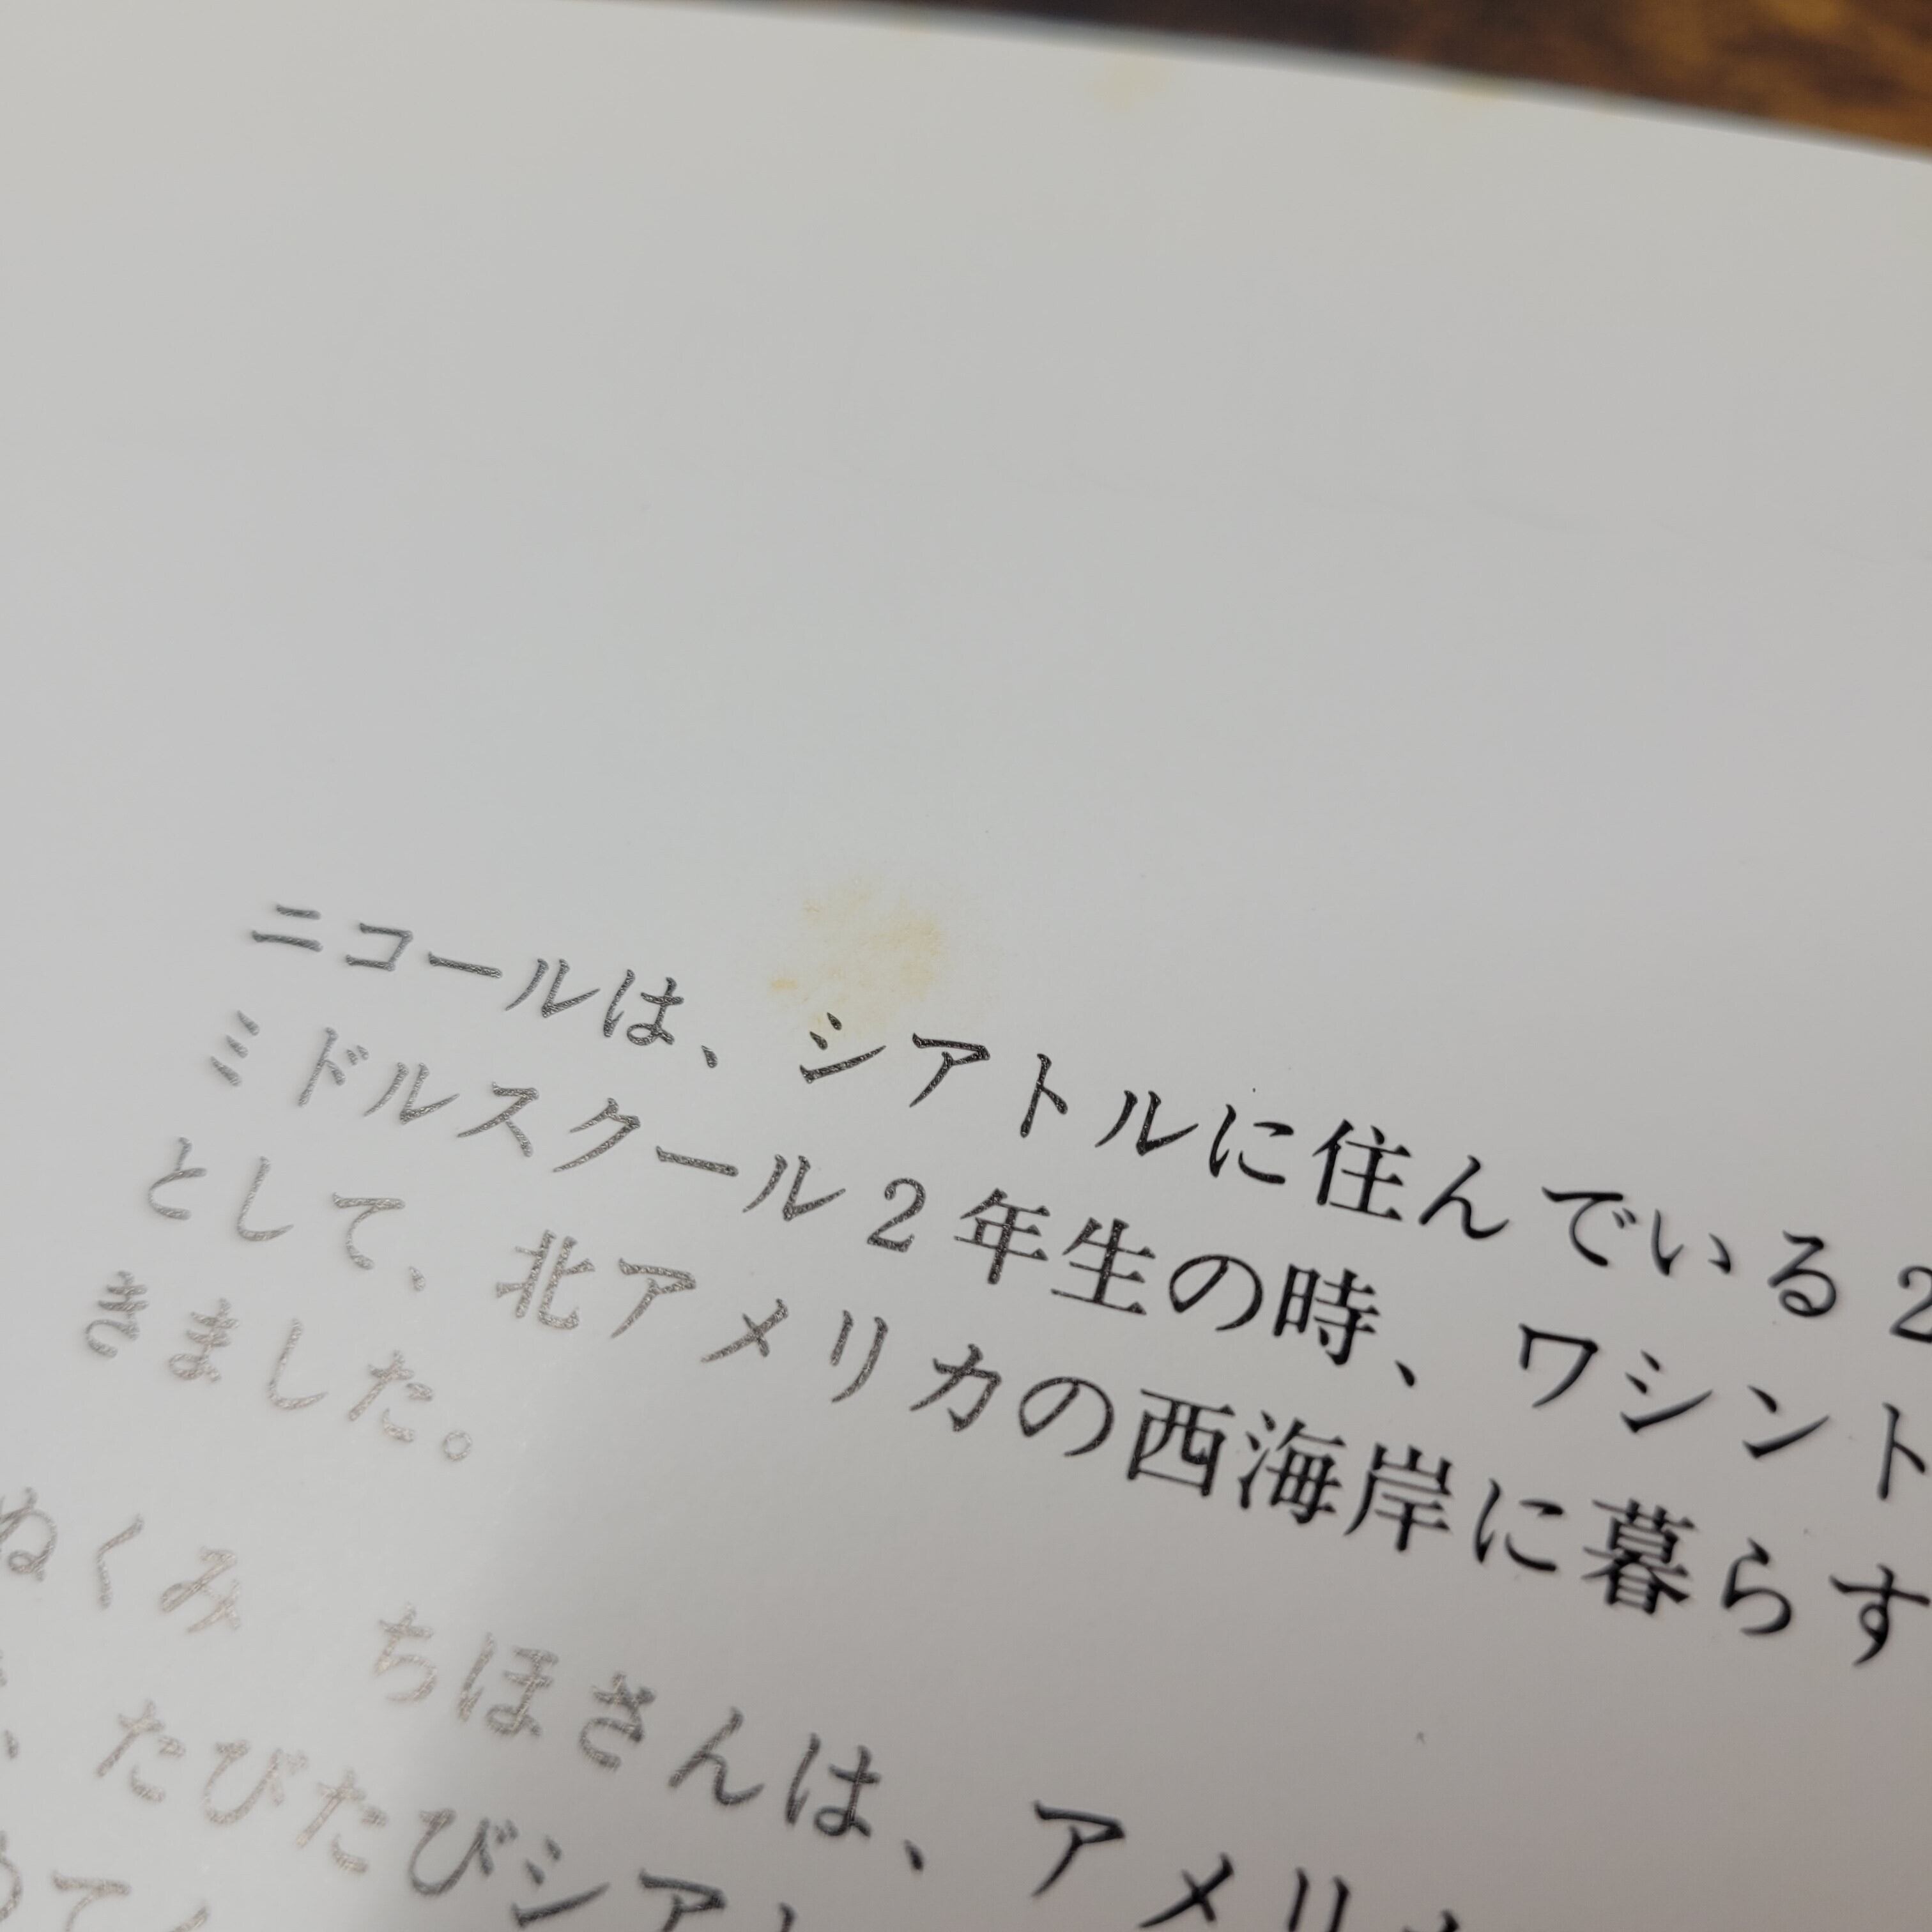 ニコールは、シアトルに住んでいる2
ミドルスクール2年生の時、ワシント
として、北アメリカの西海岸に暮らす
きました。
ぬくみ ちほさんは、アメリカ
、たびたびシアト
めてく